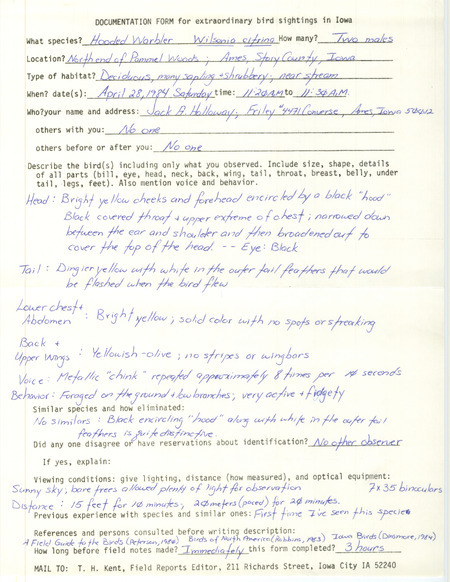 DOCUMENTATION FORM for extraordinary bird sightings in Iowa
What species? Hooded Warbler Wilsonia citrina How many? Two males
Location? North end of Pammel Woods; Ames, Story County, Iowa
Type of habitat? Deciduous, many sapling + shrubbery, near stream
When? date(s): April 28, 1984 Saturday time: 11:20 AM to 11:30 A.M.
Who? your name and address: Jack A. Holloway; Friley #4471 Converse, Ames, Iowa 50012
others with you: No one
others before or after you: No one
Describe the bird(s) including only what you observed. Include size, shape, details
of all parts (bill, eye, head, neck, back, wing, tail, throat, breast, belly, under
tail, legs, feet). Also mention voice and behavior.
Head: Bright yellow cheeks and forehead encircled by a black "hood"
Black covered throat + upper extreme of chest; narrowed down
between the ear and shoulder and then broadened out to
cover the top of the head. -- Eye: Black
Tail: Dingier yellow with white in the outer tail feathers that would
be flashed when the bird flew
Lower chest +
Abdomen : Bright yellow; solid color with no spots or streaking
Back +
Upper Wings : Yellowish-olive; no stripes or wingbars
Voice: Metallic "chink" repeated approximately 8 times per 10 seconds
Behavior: Foraged on the ground + low branches; very active + fidgety
Similar species and how eliminated:
No similars: Black encircling "hood" along with white in the outer tail
feathers is quite distinctive.
Did any one disagree or have reservations about identification? No other observer
If yes, explain:
Viewing conditions: give lighting, distance (how measured), and optical equipment:
Sunny sky; bare trees allowed plenty of light for observation 7x35 binoculars
Distance: 15 feet for 10 minutes, 20 meters (paced) for 20 minutes.
Previous experience with species and similar ones: First time I've seen this species
References and persons consulted before writing description:
A Field Guide to the Birds (Peterson, 1980) Birds of North America (Robbins, 1983) Iowa Birds (Dinsmore, 1984)
How long before field notes made? Immediately this form completed? 3 hours
MAIL TO: T. H. Kent, Field Reports Editor, 211 Richards Street, Iowa City IA 52240